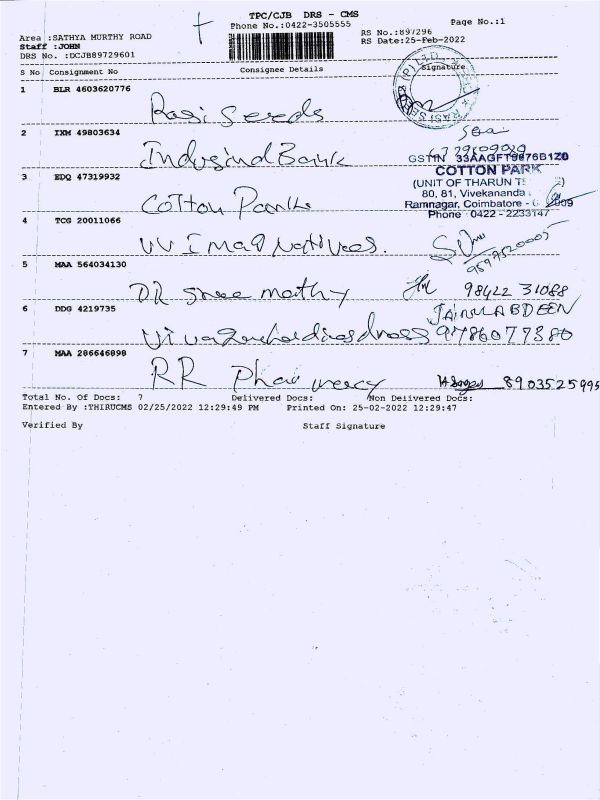 TPC/CJB DRS - CMS
Phone No.:0422-3505555
Page No.:1
Area :SATHYA MURTHY ROAD
RS No.:897296
Staff :JOHN
RS Date:25-Feb-2022
DRS No. :DCJB89729601
S No Consignment No Consignee Details Signature
1 BLR 4603620776
Rasi Seeds
2 IXM 49803634
Indusind Bank
GSTIN 33AAGFT9876B1Z0
3 EDQ 47319932
COTTON PARK
(UNIT OF THARUN
80, 81, Vivekananda
Cotton
Ramnagar, Coimbatore -
Phone 0422 - 2233147
4 TCG 20011066
5 MAA 564034130
DR Sree mathy 98422 31088
6 DDG 4219735
JAINULABDEEN
9786077380
7 MAA 286646898
RR Pharmecy 8903525995
Total No. Of Docs: 7 Delivered Docs: Non Delivered Docs:
Entered By :THIRUCMS 02/25/2022 12:29:49 PM Printed On: 25-02-2022 12:29:47
Verified By Staff Signature